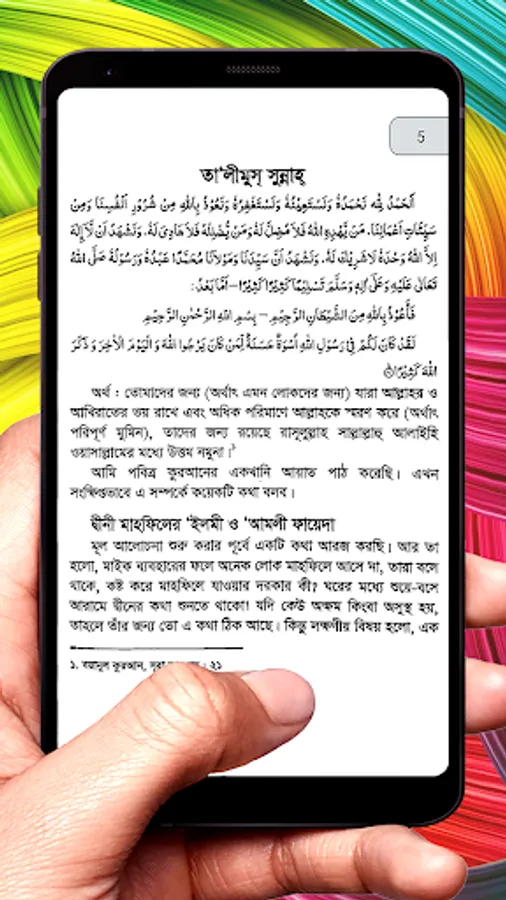 5
তা'লীমুস্ সুন্নাহ্
اَلْحَمْدُ لِلّٰهِ نَحْمَدُهٗ وَنَسْتَعِيْنُهٗ وَنَسْتَغْفِرُهٗ وَنَعُوْذُ بِاللّٰهِ مِنْ شُرُوْرِ اَنْفُسِنَا وَمِنْ
سَيِّئَاتِ اَعْمَالِنَا. مَنْ يَّهْدِهِ اللّٰهُ فَلَا مُضِلَّ لَهٗ وَمَنْ يُّضْلِلْهُ فَلَا هَادِىَ لَهٗ. وَنَشْهَدُ اَنْ لَّآ اِلٰهَ
اِلَّا اللّٰهُ وَحْدَهٗ لَاشَرِيْكَ لَهٗ. وَنَشْهَدُ اَنَّ سَيِّدَنَا وَمَوْلَانَا مُحَمَّدًا عَبْدُهٗ وَرَسُوْلُهٗ صَلَّى اللّٰهُ
تَعَالٰى عَلَيْهِ وَعَلٰى اٰلِهٖ وَسَلَّمَ تَسْلِيْمًا كَثِيْرًا كَثِيْرًا – اَمَّا بَعْدُ :
فَاَعُوْذُ بِاللّٰهِ مِنَ الشَّيْطَانِ الرَّجِيْمِ – بِسْمِ اللّٰهِ الرَّحْمٰنِ الرَّحِيْمِ
لَقَدْ كَانَ لَكُمْ فِىْ رَسُوْلِ اللّٰهِ اُسْوَةٌ حَسَنَةٌ لِّمَنْ كَانَ يَرْجُوا اللّٰهَ وَ الْيَوْمَ الْاٰخِرَ وَ ذَكَرَ
اللّٰهَ كَثِيْرًا
অর্থ : তোমাদের জন্য (অর্থাৎ এমন লোকদের জন্য) যারা আল্লাহর ও
আখিরাতের ভয় রাখে এবং অধিক পরিমাণে আল্লাহকে স্মরণ করে (অর্থাৎ
পরিপূর্ণ মুমিন), তাদের জন্য রয়েছে রাসূলুল্লাহ সাল্লাল্লাহু আলাইহি
ওয়াসাল্লামের মধ্যে উত্তম নমুনা।১
আমি পবিত্র কুরআনের একখানি আয়াত পাঠ করেছি। এখন
সংক্ষিপ্তভাবে এ সম্পর্কে কয়েকটি কথা বলব।
দ্বীনী মাহফিলের 'ইলমী ও 'আমলী ফায়েদা
মূল আলোচনা শুরু করার পূর্বে একটি কথা আরজ করছি। আর তা
হলো, মাইক ব্যবহারের ফলে অনেক লোক মাহফিলে আসে না, তারা বলে
থাকে, কষ্ট করে মাহফিলে যাওয়ার দরকার কী? ঘরের মধ্যে শুয়ে-বসে
আরামে দ্বীনের কথা শুনতে থাকো! যদি কেউ অক্ষম কিংবা অসুস্থ হয়,
তাহলে তাঁর জন্য তো এ কথা ঠিক আছে। কিন্তু লক্ষণীয় বিষয় হলো, এক
১. বয়ানুল কুরআন, সূরা : ২১